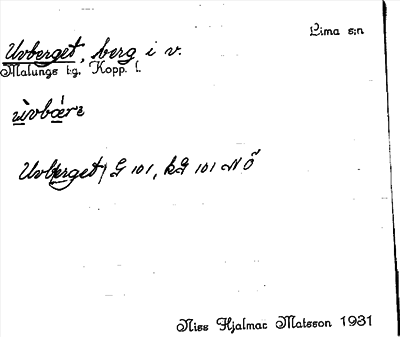 Lima s:n
Uvberget, berg i v.
Malungs t:g. Kopp. l.
ùvbǽrɛ
Uvberget, G 101, kG 101 N Ö
Niss Hjalmar Matsson 1931